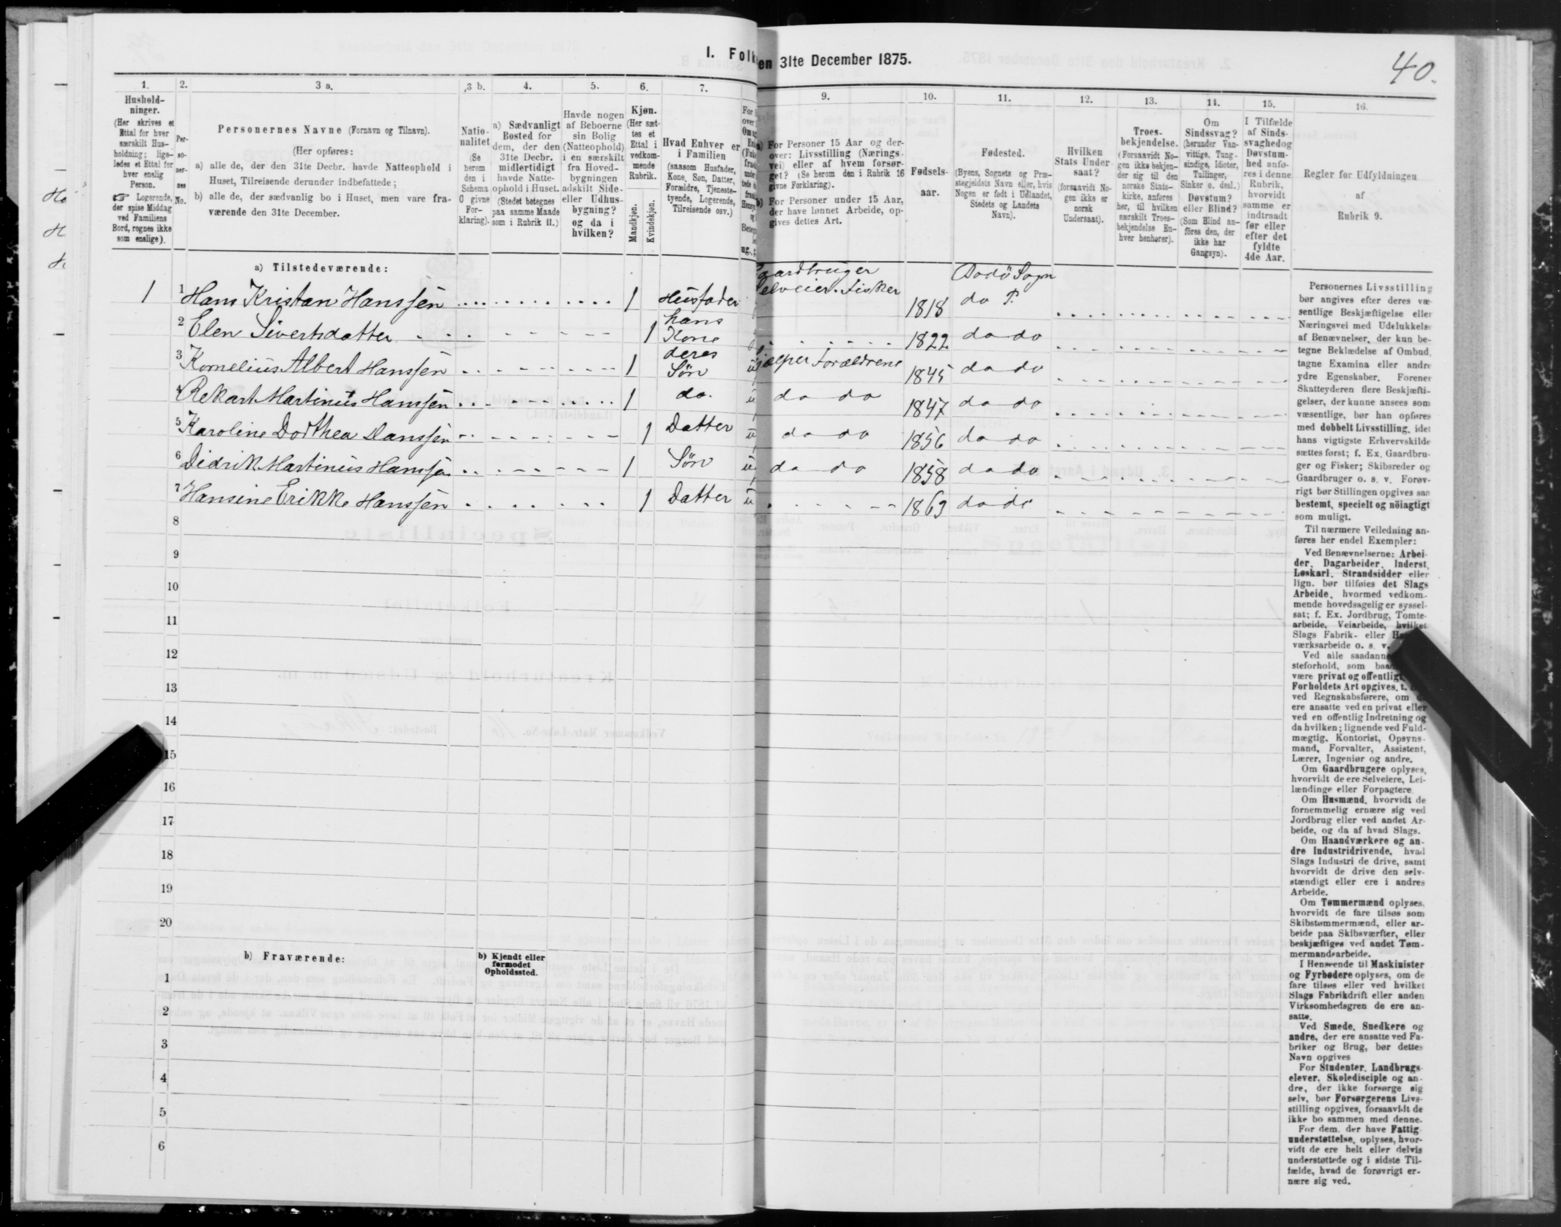 I. Folk
en 31te December 1875.
40.
1.
2.
3 a.
3 b.
4.
5.
6.
7.
9.
10.
11.
12.
13.
14.
15.
16.
Hushold-
ninger.
(Her skrives et
Ettal for hver
særskilt Hus-
holdning; lige-
ledes et Ettal for
hver enslig
Person.
☞ Logerende,
der spise Middag
ved Familiens
Bord, regnes ikke
som enslige).
Per-
so-
ner-
nes
No.
Personernes Navne (Fornavn og Tilnavn).
(Her opføres:
a) alle de, der den 31te Decbr. havde Natteophold i
Huset, Tilreisende derunder indbefattede;
b) alle de, der sædvanlig bo i Huset, men vare fra-
værende den 31te December.
Natio-
nalitet
(Se
herom
den i
Schema
0 givne
For-
klaring).
a) Sædvanligt
Bosted for
dem, der den
31te Decbr.
midlertidigt
havde Natte-
ophold i Huset.
(Stedet betegnes
paa samme Maade
som i Rubrik 11.)
Havde nogen
af Beboerne
sin Bolig
(Natteophold)
i en særskilt
fra Hoved-
bygningen
adskilt Side-
eller Udhus-
bygning?
og da i
hvilken?
Kjøn.
(Her sæt-
tes et
Ettal i
vedkom-
mende
Rubrik.
Mandkjøn.
Kvindekjøn.
Hvad Enhver er
i Familien
(saasom Husfader,
Kone, Søn, Datter,
Forældre, Tjeneste-
tyende, Logerende,
Tilreisende osv.)
For Personer 15 Aar og der-
over: Livsstilling (Nærings-
vei) eller af hvem forsør-
get? (Se herom den i Rubrik 16
givne Forklaring).
For Personer under 15 Aar,
der have lønnet Arbeide, op-
gives dettes Art.
Fødsels-
aar.
Fødested.
(Byens, Sognets og Præ-
stegjeldets Navn eller, hvis
Nogen er født i Udlandet,
Stedets og Landets
Navn).
Hvilken
Stats Under
saat?
(forsaavidt No-
gen ikke er
norsk
Undersaat).
Troes-
bekjendelse.
(Forsaavidt No-
gen ikke bekjen-
der sig til den
norske Stats-
kirke, anføres
her, til hvilken
særskilt Troes-
bekjendelse En-
hver henhører).
Om
Sindssvag?
(herunder Van-
vittige, Tung-
sindige, Idioter,
Tullinger,
Sinker o. desl.)
Døvstum?
eller Blind?
(Som Blind an-
føres den, der
ikke har
Gangsyn).
I Tilfælde
af Sinds-
svaghed og
Døvstum-
hed anfø-
res i denne
Rubrik,
hvorvidt
samme er
indtraadt
før eller
efter det
fyldte
4de Aar.
Regler for Udfyldningen
af
Rubrik 9.
a) Tilstedeværende:
1 1 Hans Kristan Hanssen 1 Husfader Gaardbruger Selveier. Fisker 1818 Bodø Sogn do P.
2 Elen Sivertsdatter 1 hans Kone 1822 do do
3 Kornelius Albert Hanssen 1 deres Søn u hjælper Forældrene 1845 do do
4 Rekart Martinius Hanssen 1 do. u do do 1847 do do
5 Karoline Dorthea Hanssen 1 Datter u do do 1856 do do
6 Didrik Martinius Hanssen 1 Søn u do do 1858 do do
7 Hansine Erikke Hanssen 1 Datter u 1863 do do
8
9
10
11
12
13
14
15
16
17
18
19
20
b) Fraværende:
b) Kjendt eller
formodet
Opholdssted.
1
2
3
4
5
6
Personernes Livsstilling
bør angives efter deres væ-
sentlige Beskjæftigelse eller
Næringsvei med Udelukkelse
af Benævnelser, der kun be-
tegne Beklædelse af Ombud,
tagne Examina eller andre
ydre Egenskaber. Forener
Skatteyderen flere Beskjæfti-
gelser, der kunne ansees som
væsentlige, bør han opføres
med dobbelt Livsstilling, idet
hans vigtigste Erhvervskilde
sættes først; f. Ex. Gaardbru-
ger og Fisker; Skibsreder og
Gaardbruger o. s. v. Forøv-
rigt bør Stillingen opgives saa
bestemt, specielt og nøiagtigt
som muligt.
Til nærmere Veiledning an-
føres her endel Exempler:
Ved Benævnelserne: Arbei-
der, Dagarbeider, Inderst,
Løskarl, Strandsidder eller
lign. bør tilføies det Slags
Arbeide, hvormed vedkom-
mende hovedsagelig er syssel-
sat; f. Ex. Jordbrug, Tomte-
arbeide, Veiarbeide, hvilket
Slags Fabrik- eller
værksarbeide o. s. v.
Ved alle saadanne
steforhold, som
være privat og offentligt,
Forholdets Art opgives, t.
ved Regnskabsførere, om
ere ansatte ved en privat eller
ved en offentlig Indretning og
da hvilken; lignende ved Fuld-
mægtig, Kontorist, Opsyns-
mand, Forvalter, Assistent,
Lærer, Ingeniør og andre.
Om Gaardbrugere oplyses,
hvorvidt de ere Selveiere, Lei-
lændinge eller Forpagtere
Om Husmænd, hvorvidt de
fornemmelig ernære sig ved
Jordbrug eller ved andet Ar-
beide, og da af hvad Slags.
Om Haandværkere og an-
dre Industridrivende, hvad
Slags Industri de drive, samt
hvorvidt de drive den selv-
stændigt eller ere i andres
Arbeide.
Om Tømmermænd oplyses,
hvorvidt de fare tilsøs som
Skibstømmermænd, eller ar-
beide paa Skibsværfter, eller
beskjæftiges ved andet Tøm-
mermandsarbeide.
I Henseende til Maskinister
og Fyrbødere oplyses, om de
fare tilsøs eller ved hvilket
Slags Fabrikdrift eller anden
Virksomhedsgren de ere an-
satte.
Ved Smede, Snedkere og
andre, der ere ansatte ved Fa-
briker og Brug, bør dettes
Navn opgives
For Studenter, Landbrugs-
elever, Skoledisciple og an-
dre, der ikke forsørge sig
selv, bør Forsørgerens Livs-
stilling opgives, forsaavidt de
ikke bo sammen med denne.
For dem, der have Fattig-
understøttelse, oplyses, hvor-
vidt de ere helt eller delvis
understøttede og i sidste Til-
fælde, hvad de forøvrigt er-
nære sig ved.